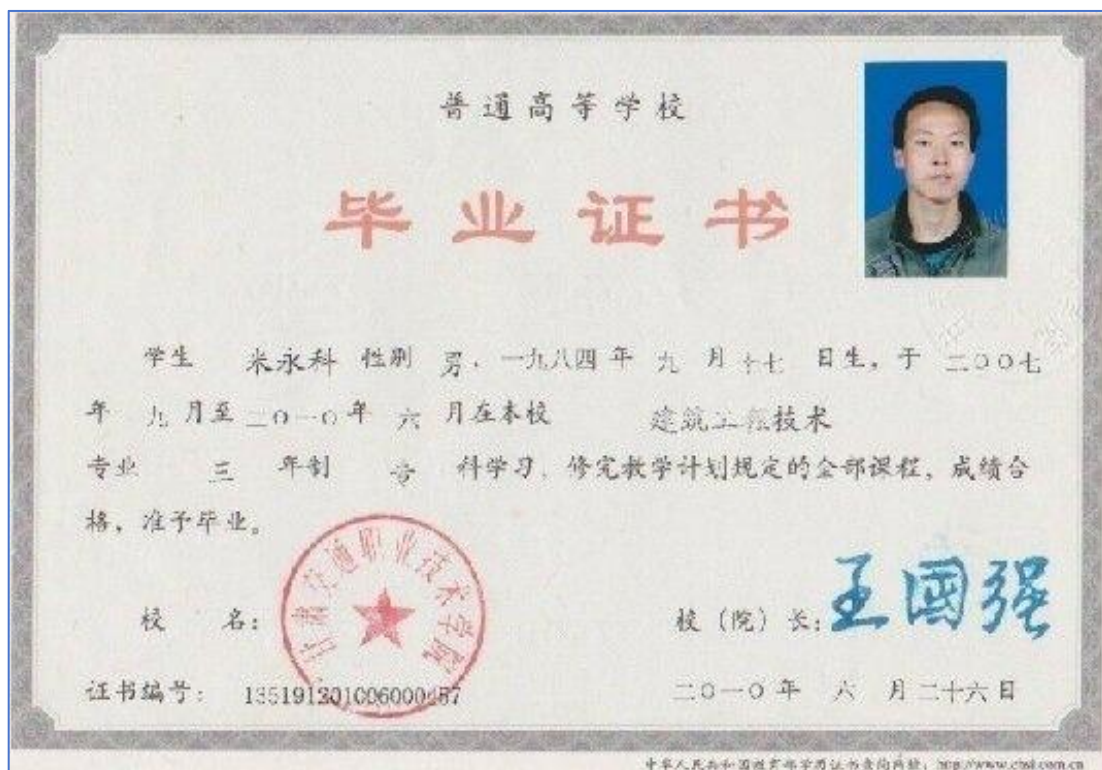 普通高等学校
毕业证书
学生 米永科 性别 男，一九八四年 九 月 十七 日生，于 二〇〇七
年 九 月至 二〇一〇 年 六 月在本校 建筑工程技术
专业 三 年制 专 科学习，修完教学计划规定的全部课程，成绩合
格，准予毕业。
甘肃交通职业技术学院
校 名：
校（院）长：王國强
证书编号： 135191201006000457
二〇一〇 年 六 月二十六日
中华人民共和国教育部学历证书查询网址：http://www.chsi.com.cn